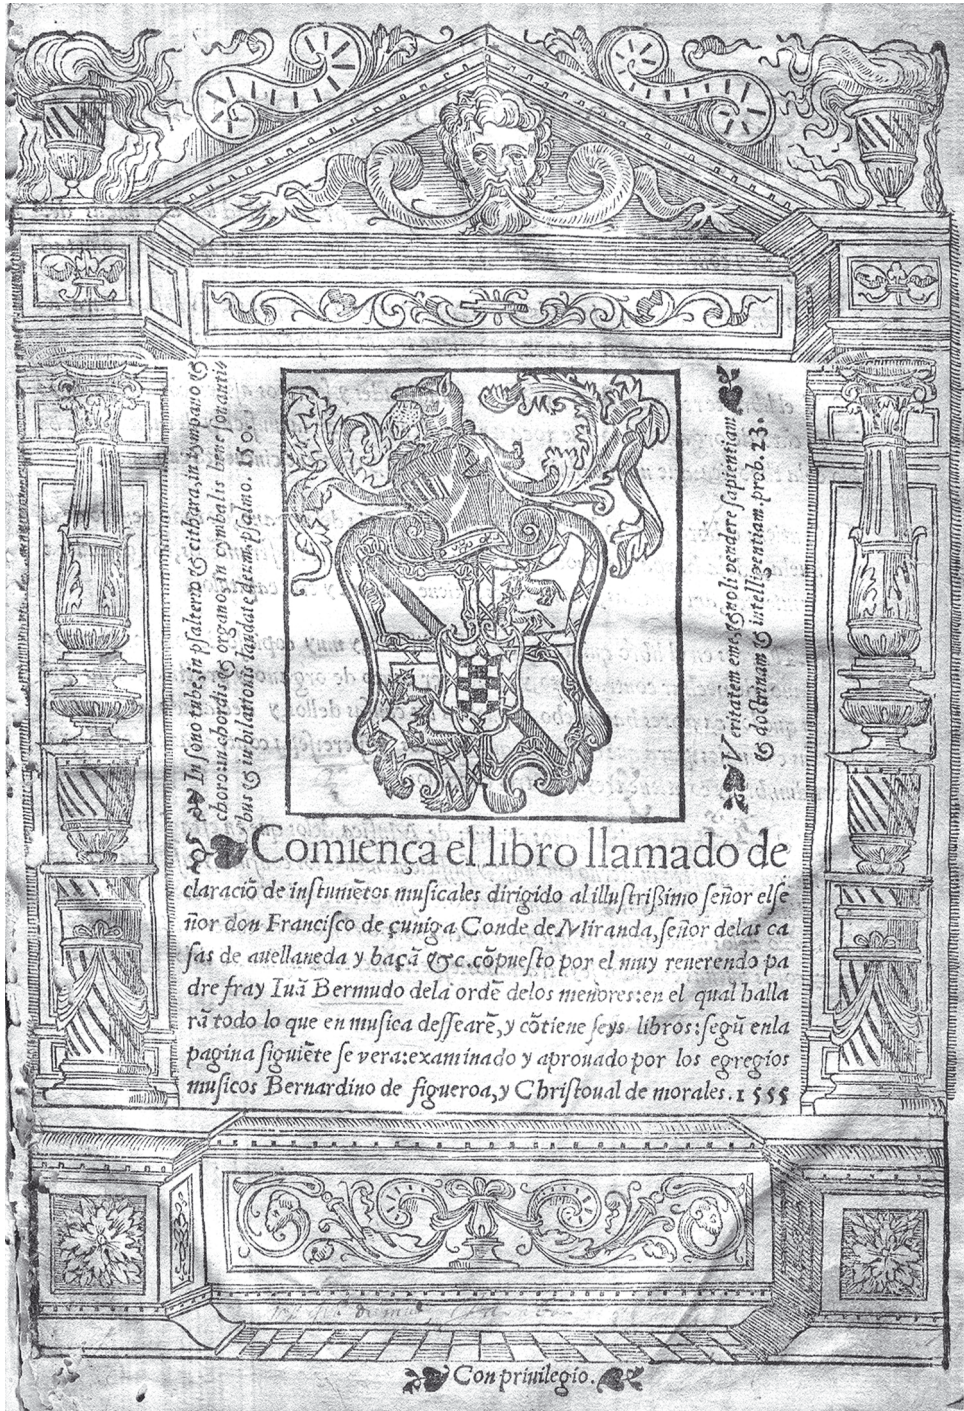 ❧ In sono tube, in psalterio & cithara, in tympano &
choro: in chordis, & organo: in cymbalis bene sonanti
bus & iubilationis laudate deum. psalmo. 150.
❧ Veritatem eme, & noli vendere sapientiam ❧
& doctrinam & intelligentiam. prob. 23.
❧ Comiença el libro llamado de
claraciõ de instumẽtos musicales dirigido al illustrissimo señor el se
ñor don Francisco de çuniga Conde de Miranda, señor delas ca
sas de auellaneda y baçã &c. cõpuesto por el muy reuerendo pa
dre fray Iuã Bermudo dela ordẽ delos menores: en el qual halla
rã todo lo que en musica dessearẽ, y cõtiene seys libros: segũ enla
pagina siguiẽte se vera: examinado y aprouado por los egregios
musicos Bernardino de figueroa, y Christoual de morales. 1555
❧ Con priuilegio. ❧